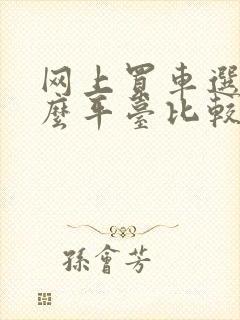 网上買車選
麼平臺比較
孫會芳